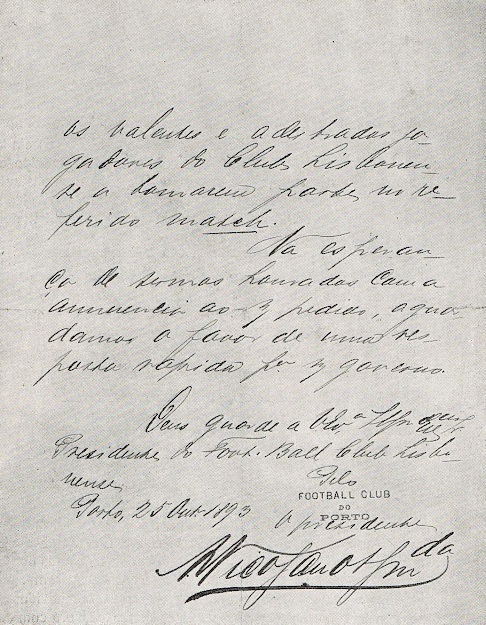 os valentes e adestrados jo-
gadores do Club Lisbonen-
se a tomarem parte no re-
ferido match.
Na esperan-
ça de sermos honrados com a
annuencia ao n/ pedido, aguar-
damos o favor de uma res-
posta rapida p.r n/ governo.
Deus guarde a
Presidente do Foot-Ball Club Lisbo-
nense.
Pelo
FOOTBALL CLUB
DO
PORTO
Porto, 25 Out. 1893
O presidente